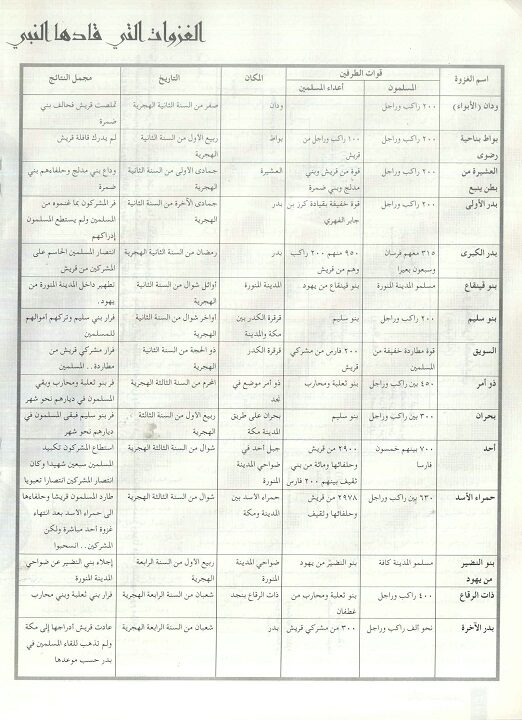 الغزوات التي قادها النبي
اسم الغزوة | قوات الطرفين | المكان | التاريخ | مجمل النتائج
المسلمون | أعداء المسلمين
ودان (الأبواء) | ٢٠٠ راكب وراجل | ودان | صفر من السنة الثانية الهجرية | تملصت قريش فحالف بني
ضمرة
بواط بناحية | ٢٠٠ راكب وراجل | ١٠٠ راكب وراجل من | بواط | ربيع الأول من السنة الثانية | لم يدرك قافلة قريش
رضوى | قريش | الهجرية
العشيرة من | ٢٠٠ راكب وراجل | قوة من قريش وبني | العشيرة | جمادى الأولى من السنة الثانية | وداع بني مدلج وحلفاءهم بني
بطن ينبع | مدلج وبني ضمرة | الهجرية | ضمرة
بدر الأولى | ٢٠٠ راكب وراجل | قوة خفيفة بقيادة كرز بن | بدر | جمادى الآخرة من السنة الثانية | فر المشركون بما غنموه من
جابر الفهري | الهجرية | المسلمين ولم يستطع المسلمون
إدراكهم
بدر الكبرى | ٣١٥ معهم فرسان | ٩٥٠ منهم ٢٠٠ راكب | بدر | رمضان من السنة الثانية الهجرية | انتصار المسلمين الحاسم على
وسبعون بعيرا | وهم من قريش | المشركين من قريش
بنو قينقاع | مسلمو المدينة المنورة | بنو قينقاع من يهود | المدينة المنورة | أوائل شوال من السنة الثانية | تطهير داخل المدينة المنورة من
الهجرية | يهود.
بنو سليم | ٢٠٠ راكب وراجل | بنو سليم | قرقرة الكدر بين | اواخر شوال من السنة الثانية | فرار بني سليم وتركهم أموالهم
مكة والمدينة | الهجرية | للمسلمين
السويق | قوة مطاردة خفيفة من | ٢٠٠ فارس من مشركي | قرقرة الكدر | ذو الحجة من السنة الثانية | فرار مشركي قريش من
المسلمين | قريش | الهجرية | مطاردة.. المسلمين
ذو أمر | ٤٥٠ بين راكب وراجل | بنو ثعلبة ومحارب | ذو أمر موضع في | المحرم من السنة الثالثة الهجرية | فر بنو ثعلبة ومحارب وبقي
نجد | المسلمون في ديارهم نحو شهر
بحران | ٣٠٠ بين راكب وراجل | بنو سليم | بحران على طريق | ربيع الأول من السنة الثالثة | فر بنو سليم فبقى المسلمون في
المدينة مكة | الهجرية | ديارهم نحو شهر
أحد | ٧٠٠ بينهم خمسون | ٢٩٠٠ من قريش | جبل أحد في | شوال من السنة الثالثة الهجرية | استطاع المشركون تكبيد
فارسا | وحلفائها ومائة من بني | ضواحي المدينة | المسلمين سبعين شهيدا وكان
ثقيف بينهم ٢٠٠ فارس | المنورة | انتصار المشركين انتصارا تعبويا
حمراء الأسد | ٦٣٠ بين راكب وراجل | ٢٩٧٨ من قريش | حمراء الاسد بين | شوال من السنة الثالثة الهجرية | طارد المسلمون قريشا وحلفاءها
وحلفائها وثقيف | المدينة ومكة | الى حمراء الاسد بعد انتهاء
غزوة أحد مباشرة ولكن
المشركين.. انسحبوا
بنو النضير | مسلمو المدينة كافة | بنو النضير من يهود | ضواحي المدينة | ربيع الأول من السنة الرابعة | إجلاء بني النضير عن ضواحي
من يهود | المنورة | الهجرية | المدينة المنورة
ذات الرقاع | ٤٠٠ راكب وراجل | بنو ثعلبة ومحارب من | ذات الرقاع بنجد | شعبان من السنة الرابعة الهجرية | فرار بني ثعلبة وبني محارب
غطفان
بدر الآخرة | نحو ألف راكب وراجل | ٣٠٠ من مشركي قريش | بدر | شعبان من السنة الرابعة الهجرية | عادت قريش أدراجها إلى مكة
ولم تذهب للقاء المسلمين في
بدر حسب موعدها